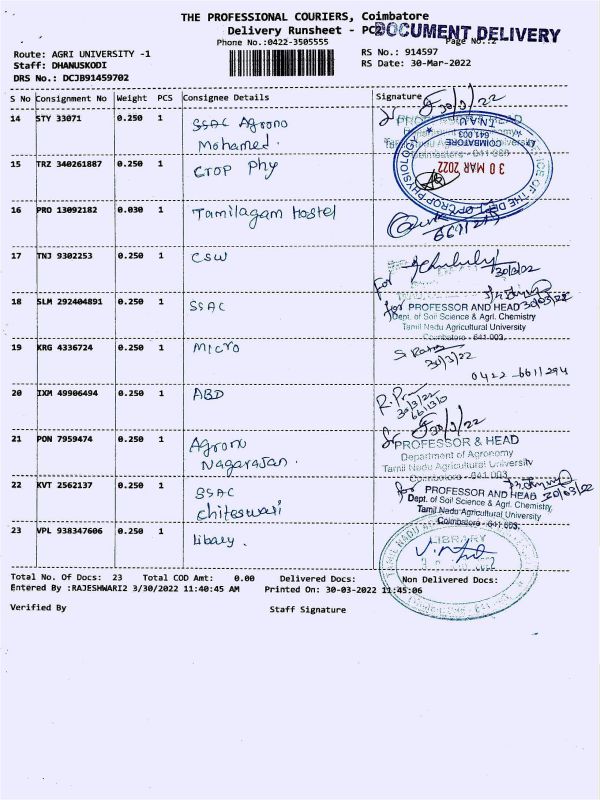 THE PROFESSIONAL COURIERS, Coimbatore
Delivery Runsheet - PCD
DOCUMENT DELIVERY
Phone No.:0422-3505555
Page No.:2
Route: AGRI UNIVERSITY -1
RS No.: 914597
Staff: DHANUSKODI
RS Date: 30-Mar-2022
DRS No.: DCJB91459702
S No Consignment No Weight PCS Consignee Details Signature
14 STY 33071 0.250 1 SSAC Agrono
Mohamed.
30/3/22
PROFESSOR & HEAD
Department of Agronomy
Tamil Nadu Agricultural University
Coimbatore - 641 003
15 TRZ 340261887 0.250 1 Crop Phy
OFFICE OF THE DEPT. OF CROP PHYSIOLOGY
TNAU
COIMBATORE
641 003
30 MAR 2022
16 PRO 13092182 0.030 1 Tamilagam Hostel
17 TNJ 9302253 0.250 1 CSW
for
30/3/22
18 SLM 292404891 0.250 1 SSAC
for PROFESSOR AND HEAD 30/03/22
Dept. of Soil Science & Agrl. Chemistry
Tamil Nadu Agricultural University
Coimbatore - 641 003.
19 KRG 4336724 0.250 1 Micro
30/3/22
0422-6611294
20 IXM 49906494 0.250 1 ABD
30/3/22
30/3/22
21 PON 7959474 0.250 1 Agrono
Nagarasan.
PROFESSOR & HEAD
Department of Agronomy
Tamil Nadu Agricultural University
Coimbatore - 641 003
22 KVT 2562137 0.250 1 SSAC
Chiteswari
for PROFESSOR AND HEAD 30/03/22
Dept. of Soil Science & Agrl. Chemistry
Tamil Nadu Agricultural University
Coimbatore - 641 003.
23 VPL 938347606 0.250 1 Libary.
LIBRARY
Total No. Of Docs: 23 Total COD Amt: 0.00 Delivered Docs: Non Delivered Docs:
Entered By :RAJESHWARI2 3/30/2022 11:40:45 AM Printed On: 30-03-2022 11:45:06
Verified By Staff Signature